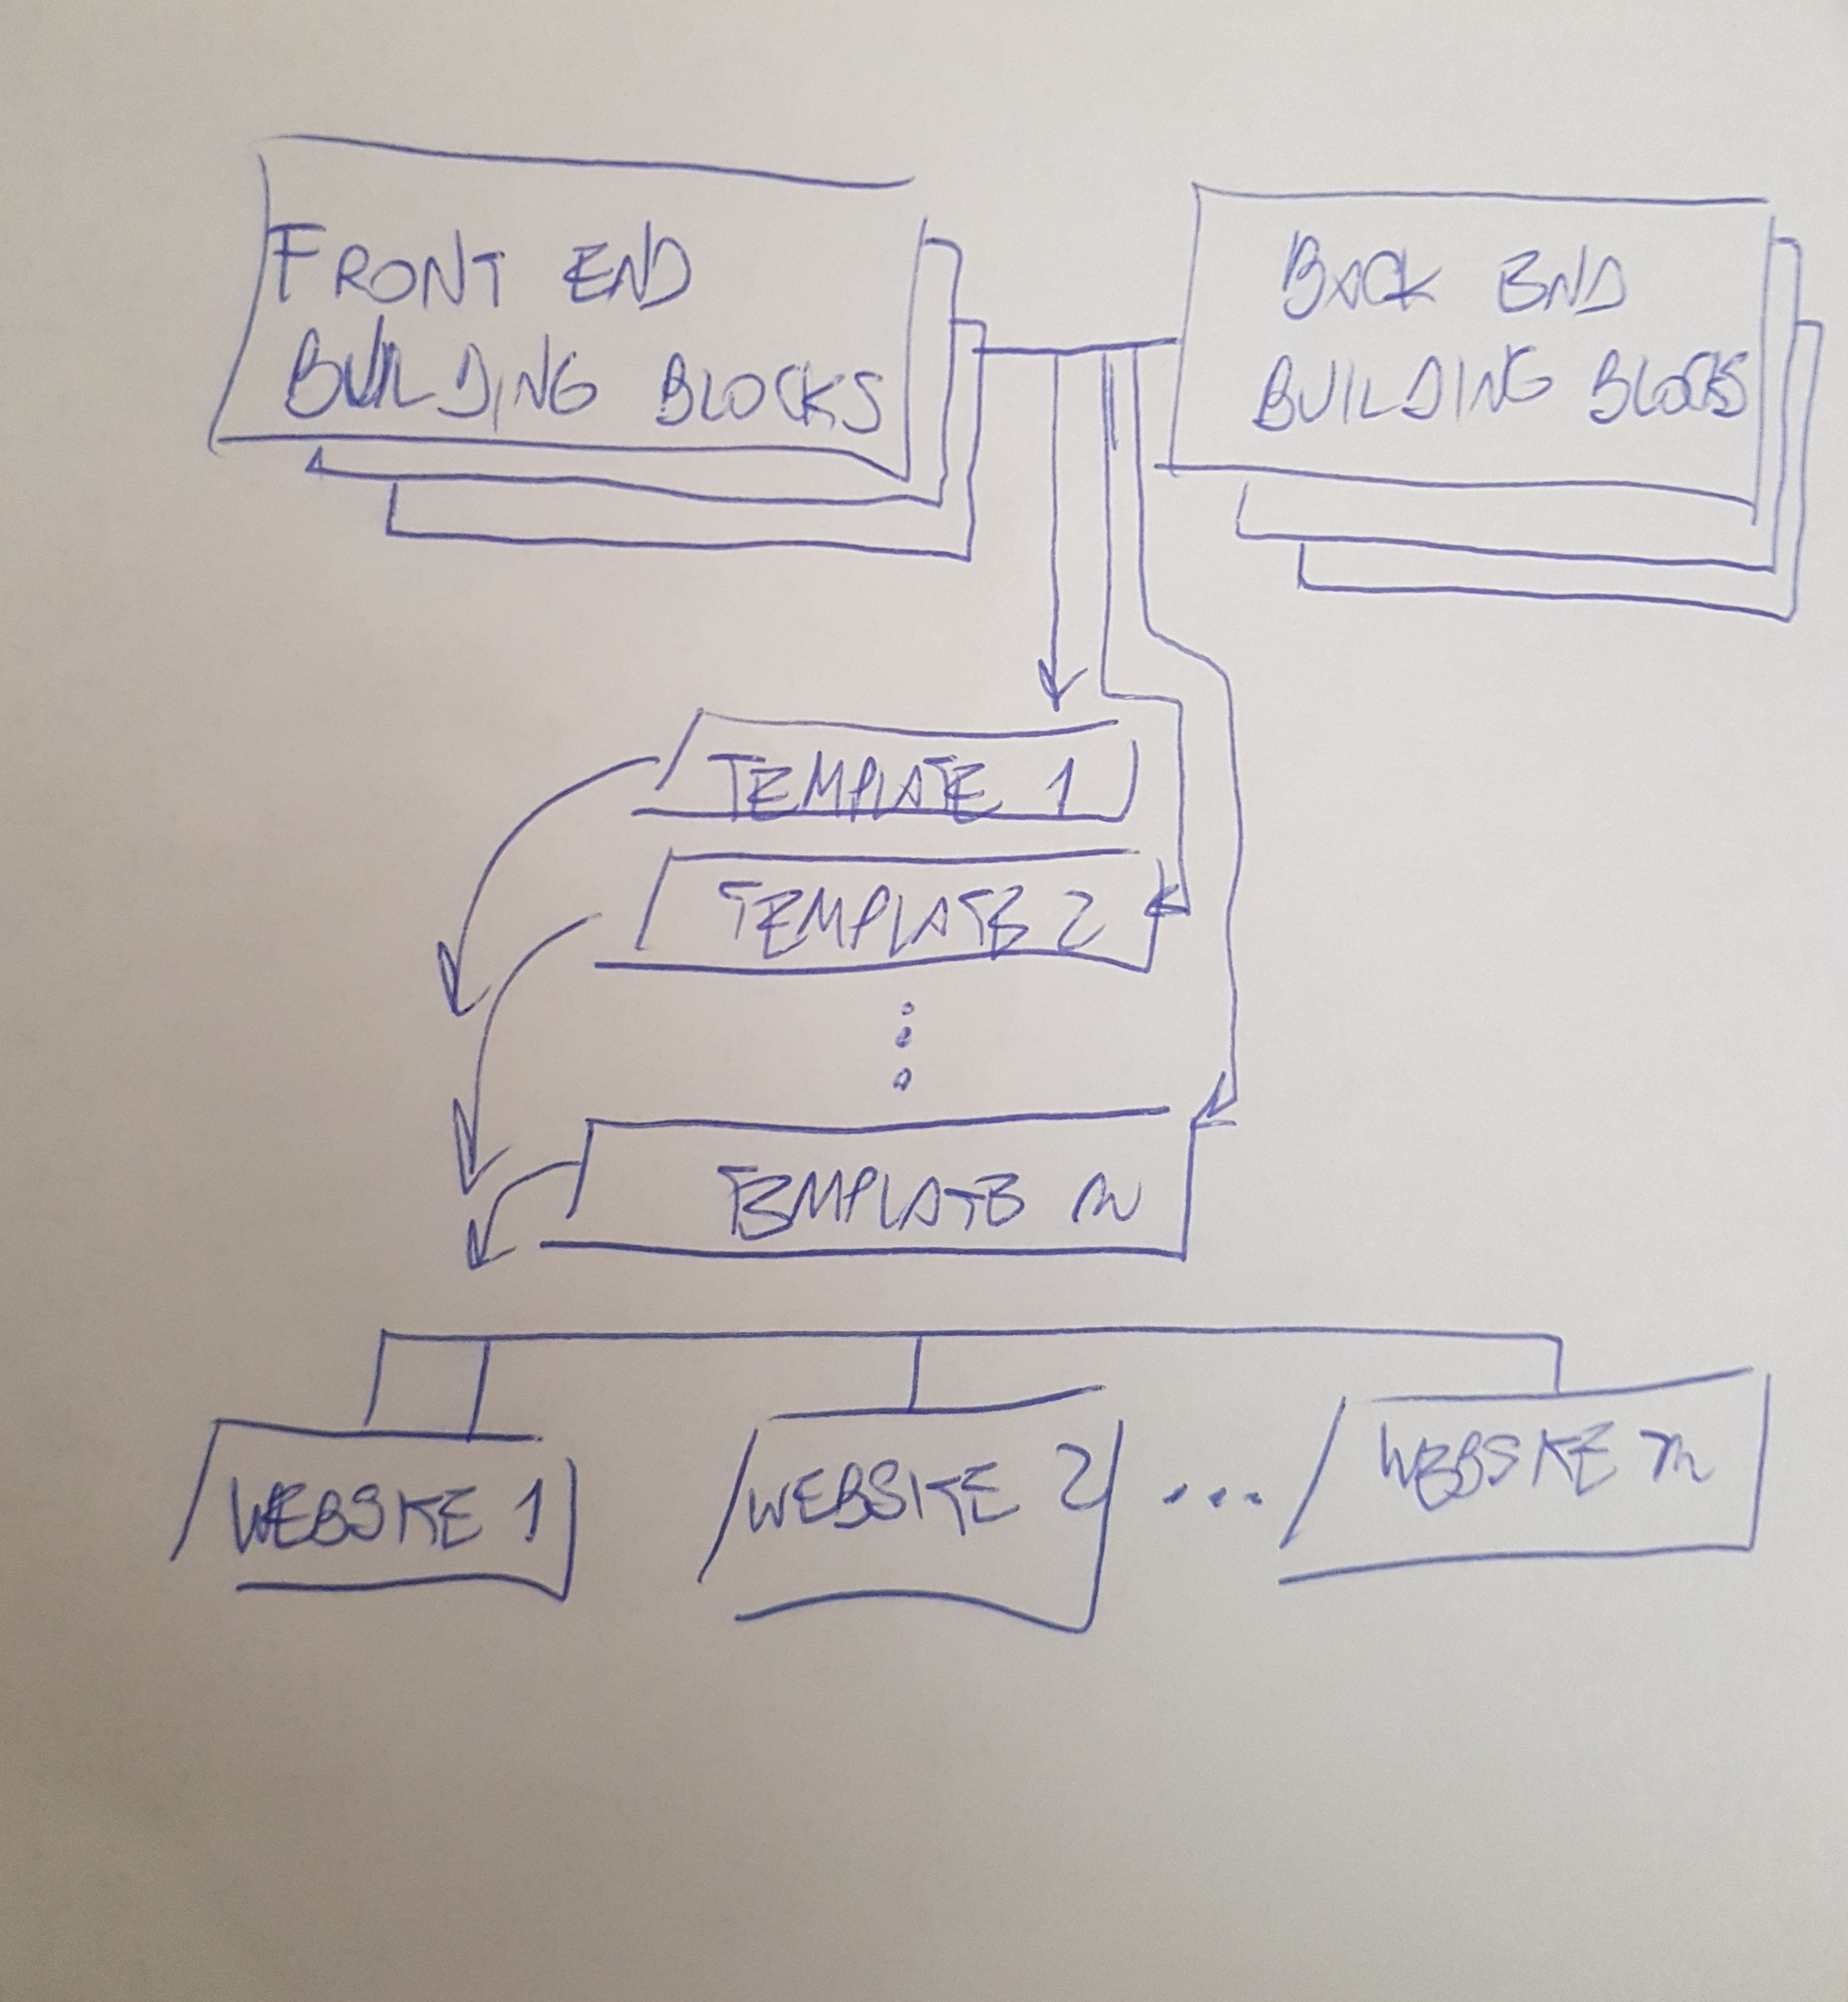 FRONT END
BUILDING BLOCKS
BACK END
BUILDING BLOCKS
TEMPLATE 1
TEMPLATE 2
TEMPLATE n
WEBSITE 1
WEBSITE 2
...
WEBSITE m